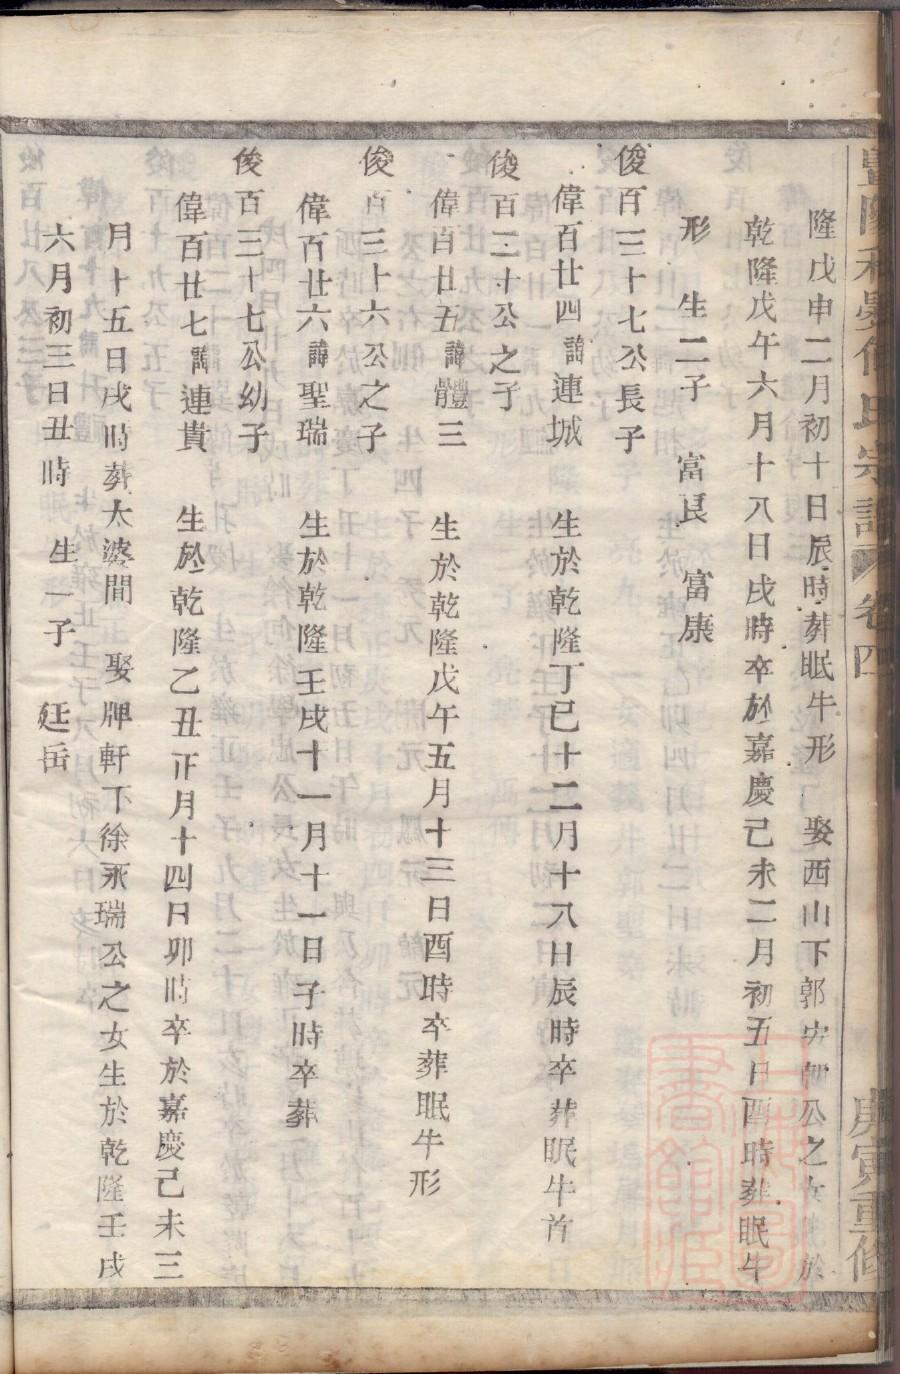 隆戊申二月初十日辰時葬眠牛形 娶西山下郭安朝公之女於
乾隆戊午六月十八日戌時卒於嘉慶己未二月初五日酉時葬眠牛
形 生二子 富良 富康
俊百三十七公長子
偉百廿四諱連城 生於乾隆丁巳十二月十八日辰時卒葬眠牛首
俊百二十公之子
偉百廿五諱體三 生於乾隆戊午五月十三日酉時卒葬眠牛形
俊百三十六公之子
偉百廿六諱聖瑞 生於乾隆壬戌十一月十一日子時卒葬
俊百三十七公幼子
偉百廿七諱連貴 生於乾隆乙丑正月十四日卯時卒於嘉慶己未三
月十五日戌時葬太婆間 娶牌軒下徐永瑞公之女生於乾隆壬戌
六月初三日丑時 生一子 廷岳
氏宗譜 卷四 庚寅重修